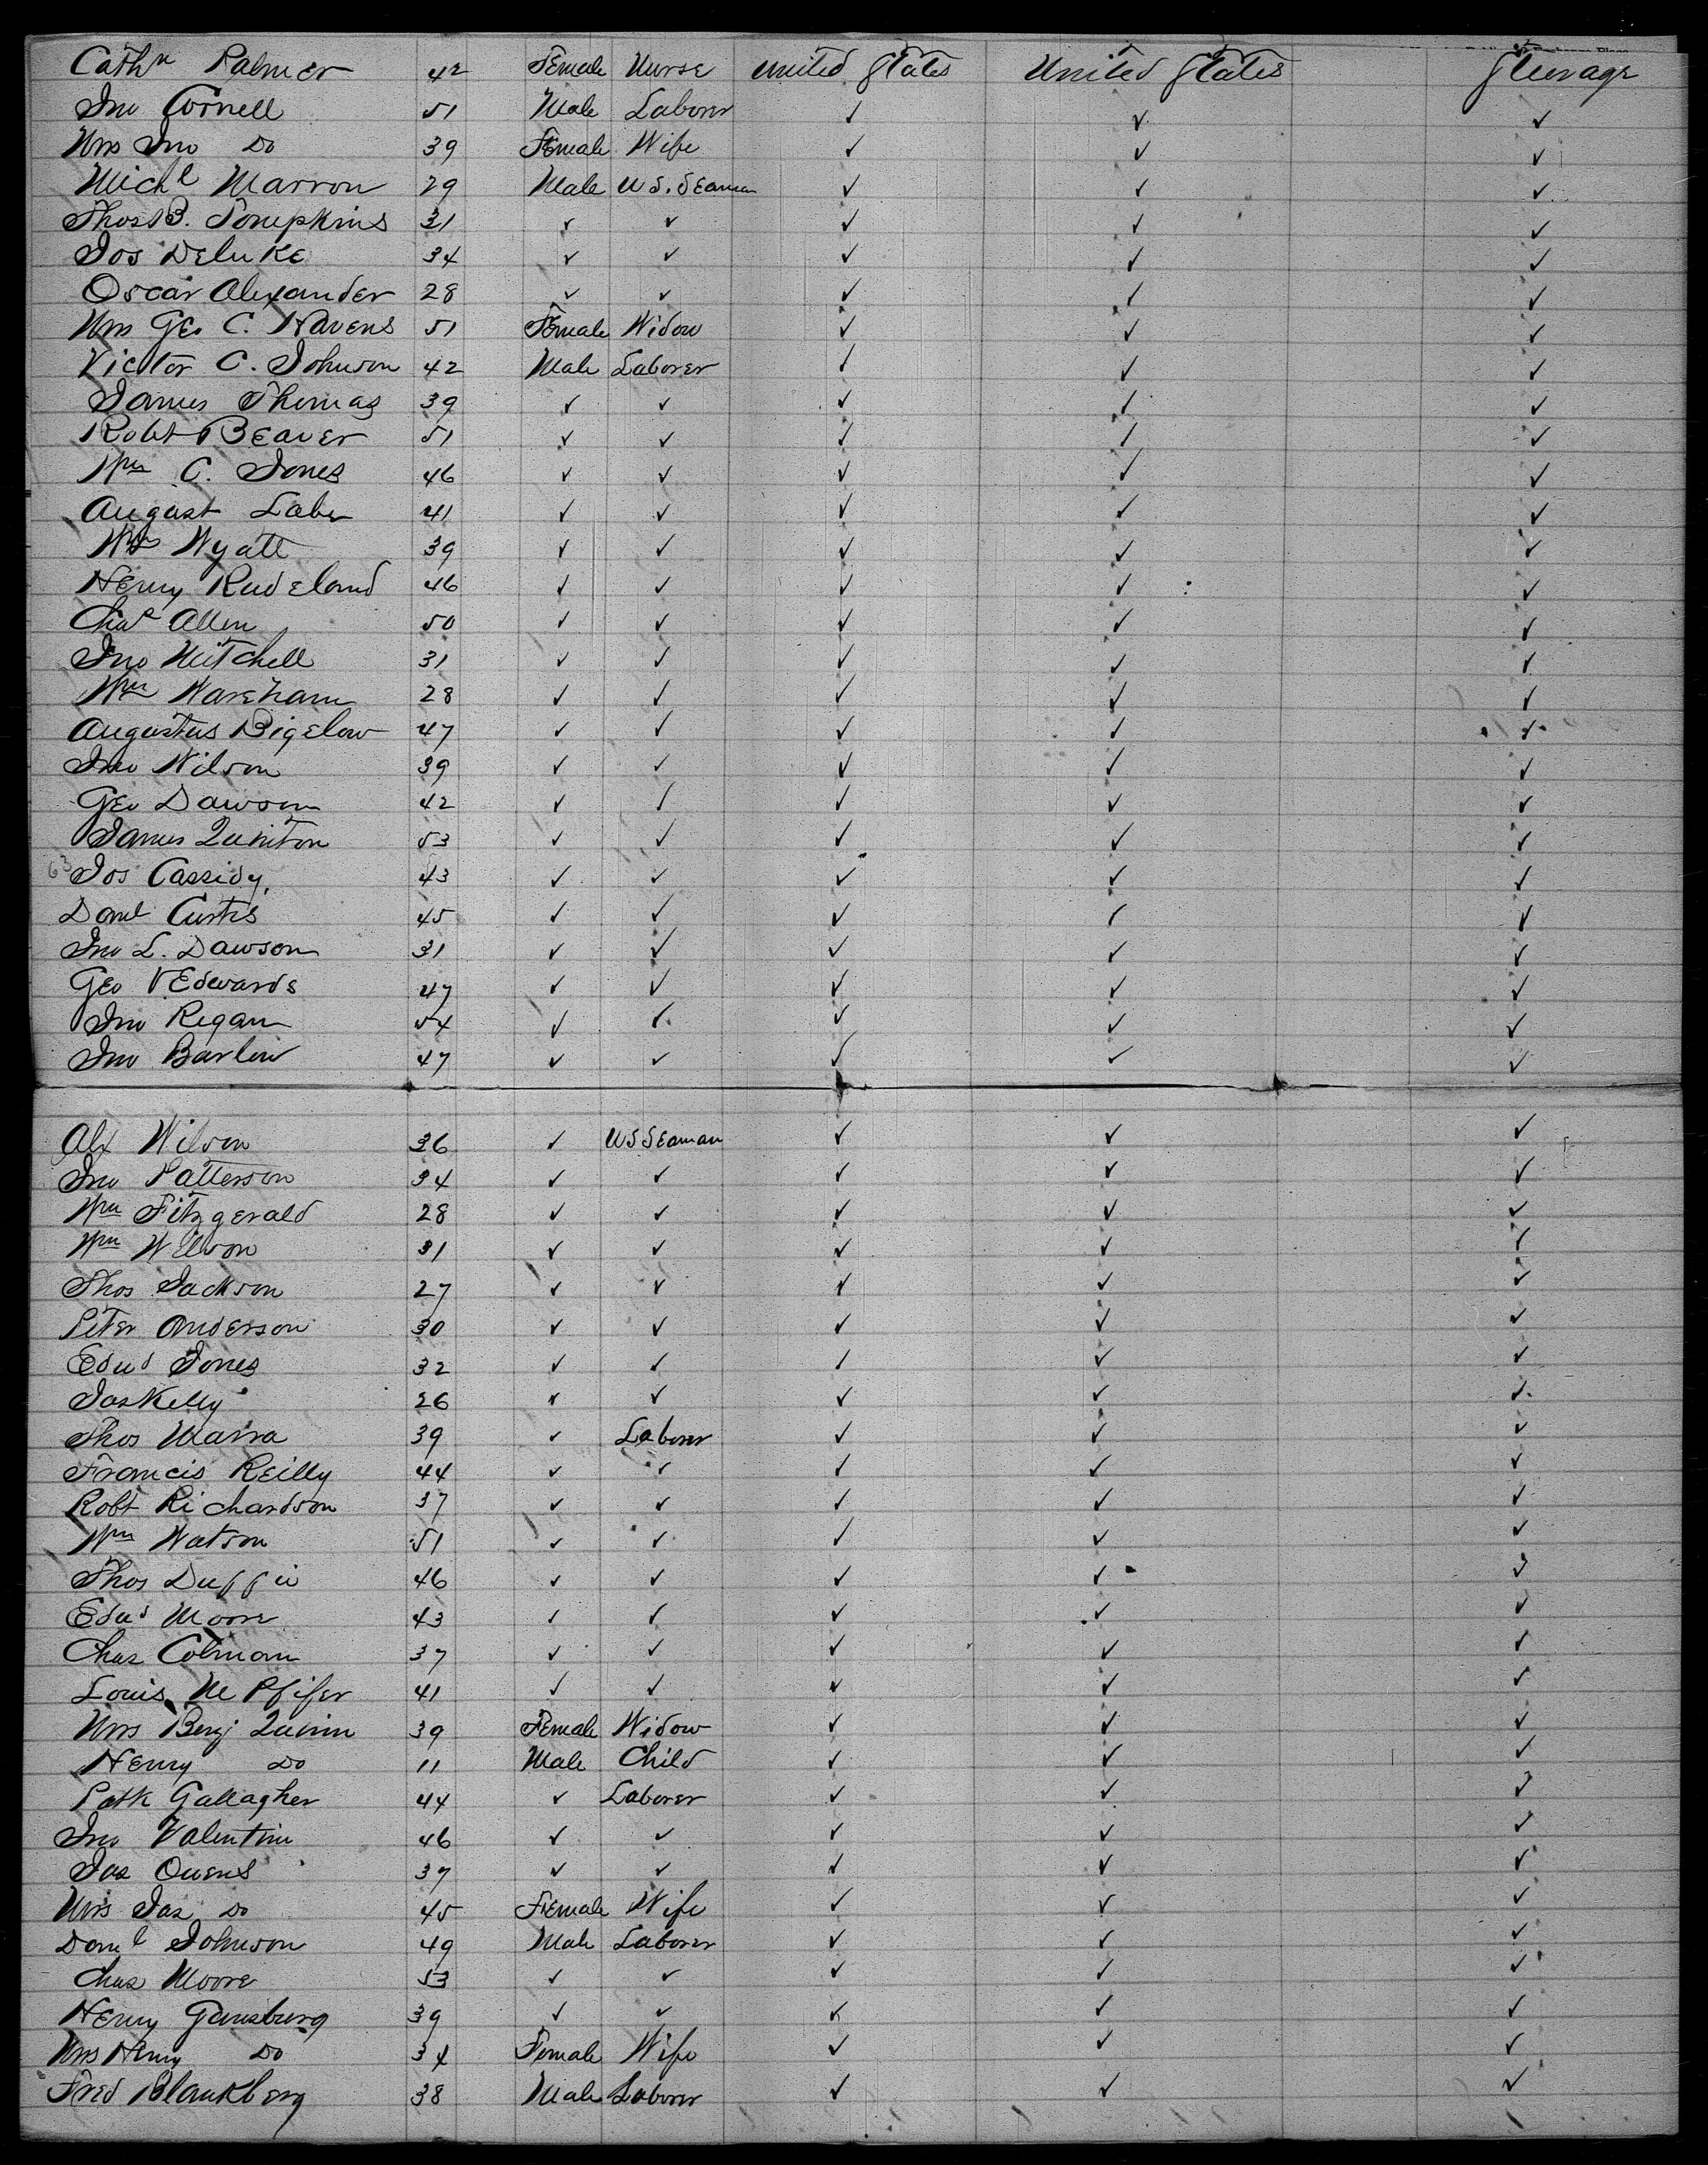 Cathn Palmer 42 Female Nurse United States United States Steerage
Jno Cornell 51 Male Laborer ✓ ✓ ✓
Mrs Jno Do 39 Female Wife ✓ ✓ ✓
Michl Marron 29 Male U.S. Seaman ✓ ✓ ✓
Thos B. Tompkins 31 ✓ ✓ ✓ ✓ ✓
Jos Deluke 34 ✓ ✓ ✓ ✓ ✓
Oscar Alexander 28 ✓ ✓ ✓ ✓ ✓
Mrs Geo C. Havens 51 Female Widow ✓ ✓ ✓
Victor C. Johnson 42 Male Laborer ✓ ✓ ✓
James Thomas 39 ✓ ✓ ✓ ✓ ✓
Robt Beaver 51 ✓ ✓ ✓ ✓ ✓
Wm C. Jones 46 ✓ ✓ ✓ ✓ ✓
August 41 ✓ ✓ ✓ ✓ ✓
Wm Wyatt 39 ✓ ✓ ✓ ✓ ✓
Henry Rudeland 46 ✓ ✓ ✓ ✓ ✓
Chas Allen 50 ✓ ✓ ✓ ✓ ✓
Jno Mitchell 31 ✓ ✓ ✓ ✓ ✓
Wm Wareham 28 ✓ ✓ ✓ ✓ ✓
Augustus Bigelow 47 ✓ ✓ ✓ ✓ ✓
Jno Wilson 39 ✓ ✓ ✓ ✓ ✓
Geo Dawson 42 ✓ ✓ ✓ ✓ ✓
James Quinton 53 ✓ ✓ ✓ ✓ ✓
63 Jos Cassidy, 43 ✓ ✓ ✓ ✓ ✓
Danl Curtis 45 ✓ ✓ ✓ ✓ ✓
Jno L. Dawson 31 ✓ ✓ ✓ ✓ ✓
Geo V Edwards 47 ✓ ✓ ✓ ✓ ✓
Jno Regan 54 ✓ ✓ ✓ ✓ ✓
Jno Barlow 47 ✓ ✓ ✓ ✓ ✓
Alx Wilson 36 ✓ US Seaman ✓ ✓ ✓
Jno Patterson 34 ✓ ✓ ✓ ✓ ✓
Wm Fitzgerald 28 ✓ ✓ ✓ ✓ ✓
Wm Wilson 31 ✓ ✓ ✓ ✓ ✓
Thos Jackson 27 ✓ ✓ ✓ ✓ ✓
Peter Anderson 30 ✓ ✓ ✓ ✓ ✓
Edwd Jones 32 ✓ ✓ ✓ ✓ ✓
Jas Kelly 26 ✓ ✓ ✓ ✓ ✓
Thos Marra 39 ✓ Laborer ✓ ✓ ✓
Francis Reilly 44 ✓ ✓ ✓ ✓ ✓
Robt Richardson 37 ✓ ✓ ✓ ✓ ✓
Wm Watson 51 ✓ ✓ ✓ ✓ ✓
Thos Duffie 46 ✓ ✓ ✓ ✓ ✓
Edwd Moore 43 ✓ ✓ ✓ ✓ ✓
Chas Colman 37 ✓ ✓ ✓ ✓ ✓
Louis M Pfifer 41 ✓ ✓ ✓ ✓ ✓
Mrs Benj Quinn 39 Female Widow ✓ ✓ ✓
Henry Do 11 Male Child ✓ ✓ ✓
Patk Gallagher 44 ✓ Laborer ✓ ✓ ✓
Jno Valentine 46 ✓ ✓ ✓ ✓ ✓
Jas Owens 37 ✓ ✓ ✓ ✓ ✓
Mrs Jas Do 45 Female Wife ✓ ✓ ✓
Danl Johnson 49 Male Laborer ✓ ✓ ✓
Chas Moore 53 ✓ ✓ ✓ ✓ ✓
Henry Gansburg 39 ✓ ✓ ✓ ✓ ✓
Mrs Henry Do 34 Female Wife ✓ ✓ ✓
Fred Blankberg 38 Male Laborer ✓ ✓ ✓